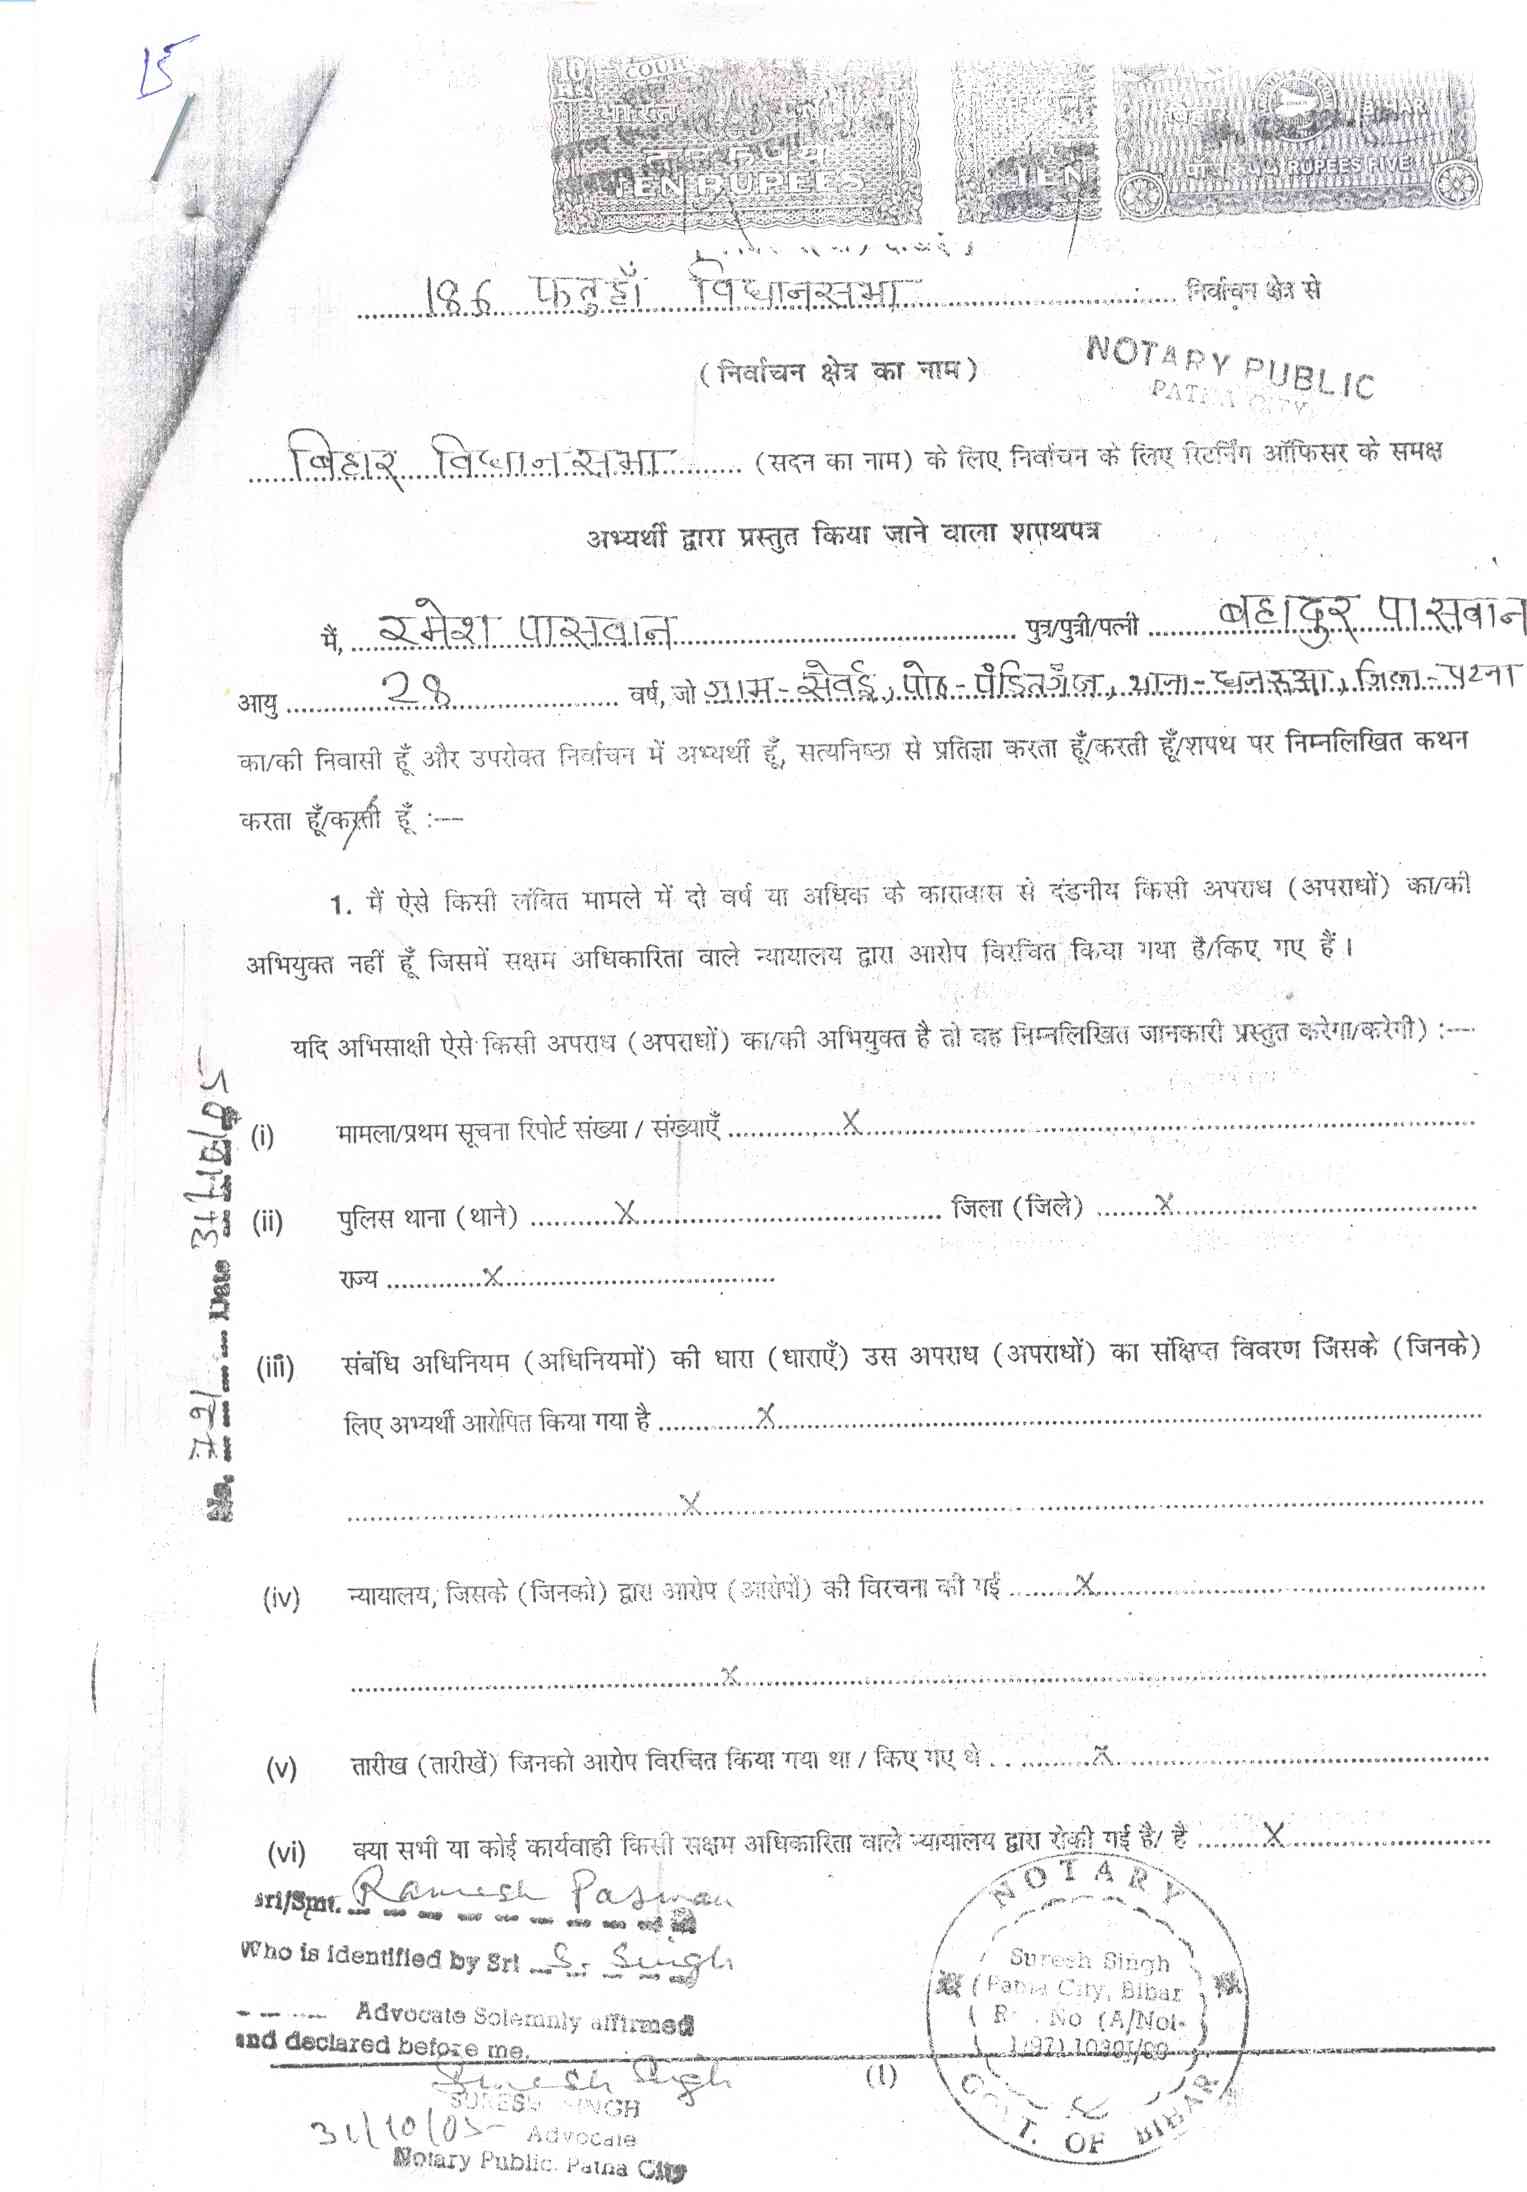 15
COUR
भारत
TEN RUPEES
TEN
बिहार BIHAR
RUPEES FIVE
186 फतुहाँ विधानसभा निर्वाचन क्षेत्र से
(निर्वाचन क्षेत्र का नाम)
NOTARY PUBLIC
PATNA CITY
बिहार विधानसभा (सदन का नाम) के लिए निर्वाचन के लिए रिटर्निंग ऑफिसर के समक्ष
अभ्यर्थी द्वारा प्रस्तुत किया जाने वाला शपथपत्र
मैं, रमेश पासवान पुत्र/पुत्री/पत्नी बहादुर पासवान
आयु 28 वर्ष, जो ग्राम-सेवई, पो०-पंडितगँज, थाना-धनरूआ, जिला-पटना
का/की निवासी हूँ और उपरोक्त निर्वाचन में अभ्यर्थी हूँ, सत्यनिष्ठा से प्रतिज्ञा करता हूँ/करती हूँ/शपथ पर निम्नलिखित कथन
करता हूँ/करती हूँ :---
1. मैं ऐसे किसी लंबित मामले में दो वर्ष या अधिक के कारावास से दंडनीय किसी अपराध (अपराधों) का/की
अभियुक्त नहीं हूँ जिसमें सक्षम अधिकारिता वाले न्यायालय द्वारा आरोप विरचित किया गया है/किए गए हैं ।
यदि अभिसाक्षी ऐसे किसी अपराध (अपराधों) का/की अभियुक्त है तो वह निम्नलिखित जानकारी प्रस्तुत करेगा/करेगी) :---
(i) मामला/प्रथम सूचना रिपोर्ट संख्या / संख्याएँ X
(ii) पुलिस थाना (थाने) X जिला (जिले) X
राज्य X
(iii) संबंधि अधिनियम (अधिनियमों) की धारा (धाराएँ) उस अपराध (अपराधों) का संक्षिप्त विवरण जिसके (जिनके)
लिए अभ्यर्थी आरोपित किया गया है X
X
(iv) न्यायालय, जिसके (जिनको) द्वारा आरोप (आरोपों) की विरचना की गई X
X
(v) तारीख (तारीखें) जिनको आरोप विरचित किया गया था / किए गए थे X
(vi) क्या सभी या कोई कार्यवाही किसी सक्षम अधिकारिता वाले न्यायालय द्वारा रोकी गई है/ है X
Sri/Smt. Ramesh Paswan
Who is identified by Sri S. Singh
Advocate Solemnly affirmed
and declared before me.
Suresh Singh
SURESH SINGH
31/10/05 Advocate
Notary Public. Patna City
(1)
NOTARY
Suresh Singh
Patna City, Bihar
No (A/Not-
GOVT. OF BIHAR